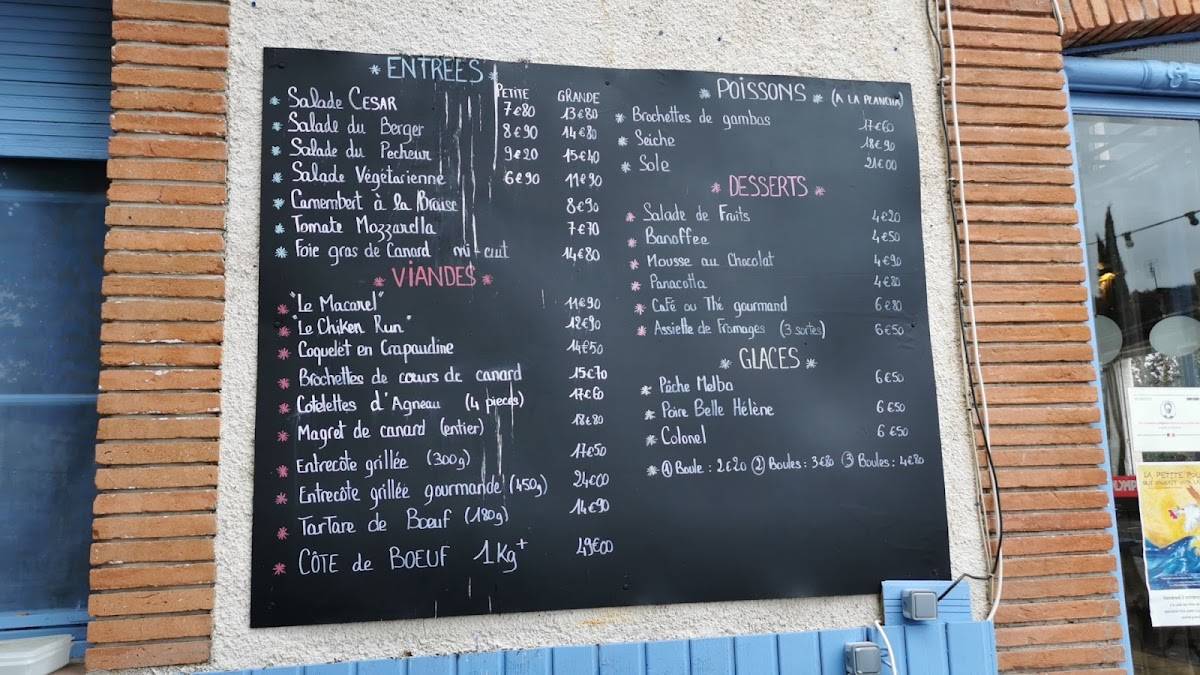 * ENTREES *
PETITE GRANDE
* Salade CESAR 7€80 13€80
* Salade du Berger 8€90 14€80
* Salade du Pecheur 9€20 15€40
* Salade Végétarienne 6€90 11€90
* Camembert à la Braise 8€90
* Tomate Mozzarella 7€70
* Foie gras de Canard mi-cuit 14€80
* VIANDES *
* "Le Macarel" 11€90
* "Le Chiken Run" 12€90
* Coquelet en Crapaudine 14€50
* Brochettes de cœurs de canard 15€70
* Cotelettes d'Agneau (4 pieces) 17€60
* Magret de canard (entier) 18€80
* Entrecôte grillée (300g) 17€50
* Entrecôte grillée gourmande (450g) 24€00
* TarTare de Bœuf (180g) 14€90
* CÔTE de BOEUF 1Kg+ 49€00
* POISSONS * (A LA PLANCHA)
* Brochettes de gambas 17€60
* Seiche 18€90
* Sole 21€00
* DESSERTS *
* Salade de Fruits 4€20
* Banoffee 4€50
* Mousse au Chocolat 4€90
* Panacotta 4€80
* Café ou Thé gourmand 6€80
* Assiette de Fromages (3 sortes) 6€50
* GLACES *
* Pêche Melba 6€50
* Poire Belle Hélène 6€50
* Colonel 6€50
* ① Boule : 2€20 ② Boules : 3€80 ③ Boules : 4€80
LA PETITE